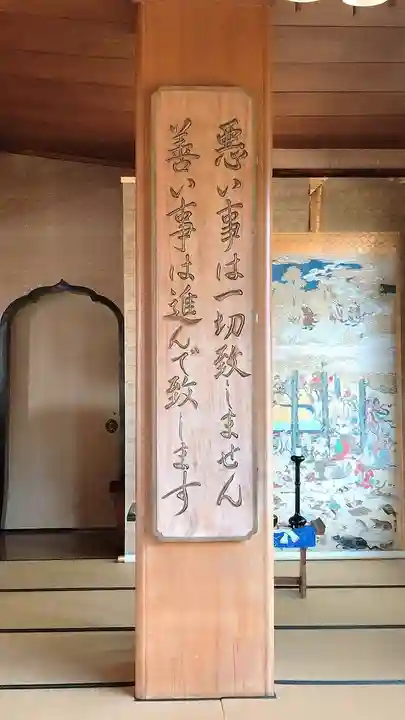 悪い事は一切致しません
善い事は進んで致します